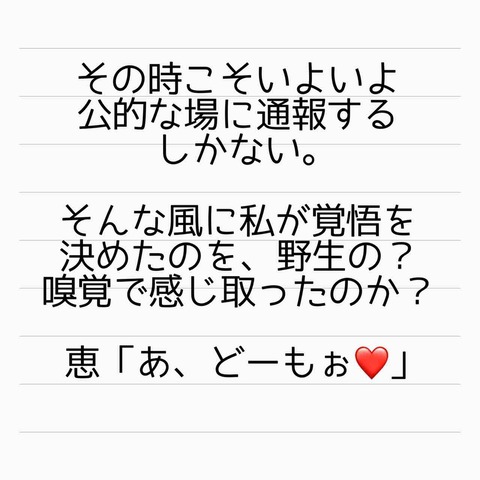 その時こそいよいよ
公的な場に通報する
しかない。
そんな風に私が覚悟を
決めたのを、野生の？
嗅覚で感じ取ったのか？
恵「あ、どーもぉ❤️」